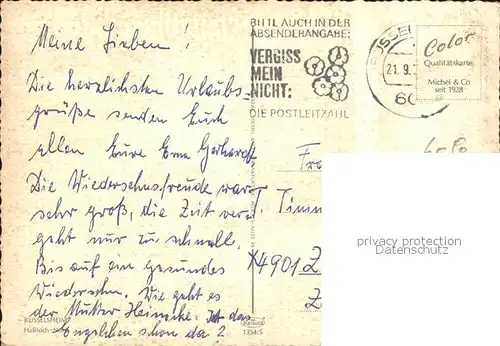 Meine Lieben!
Die herzlichsten Urlaubs-
grüße senden Euch
allen Eure Erna Gerhardt
Die Wiedersehnsfreude war
sehr groß, die Zeit ver-
geht nur zu schnell.
Bis auf ein gesundes
Wiedersehn. Wie geht es
der Mutter Heinecke. Ist das
Engelchen schon da?
BITTE AUCH IN DER
ABSENDERANGABE:
VERGISS
MEIN
NICHT:
DIE POSTLEITZAHL
21.9.
60
Color
Qualitätskarte
Michel & Co
seit 1928
T. Timm
4901 Z
privacy protection
Datenschutz
RÜSSELSHEIM
Haßloch
1354/5